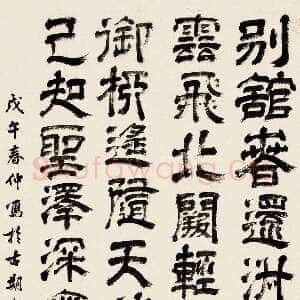 別館春還淑
雲飛北闕輕
御柳遙隨天
已知聖澤深無
戊午春仲寫於古